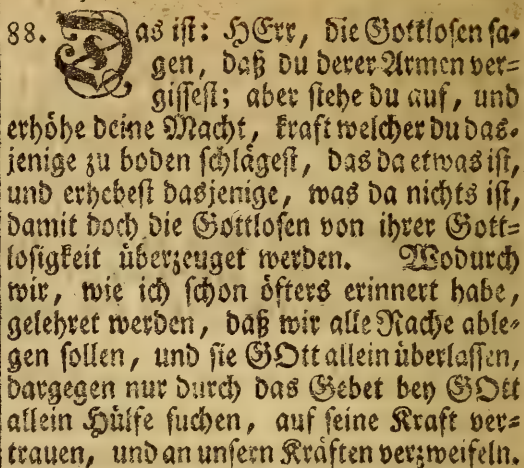 88. Das ist: HErr, die Gottlosen sa-
gen, daß du derer Armen ver-
gissest; aber stehe du auf, und
erhöhe deine Macht, kraft welcher du das-
jenige zu boden schlägest, das da etwas ist,
und erhebest dasjenige, was da nichts ist,
damit doch die Gottlosen von ihrer Gott-
losigkeit überzeuget werden. Wodurch
wir, wie ich schon öfters erinnert habe,
gelehret werden, daß wir alle Rache able-
gen sollen, und sie GOtt allein überlassen,
dargegen nur durch das Gebet bey GOtt
allein Hülfe suchen, auf seine Kraft ver-
trauen, und an unsern Kräften verzweifeln.